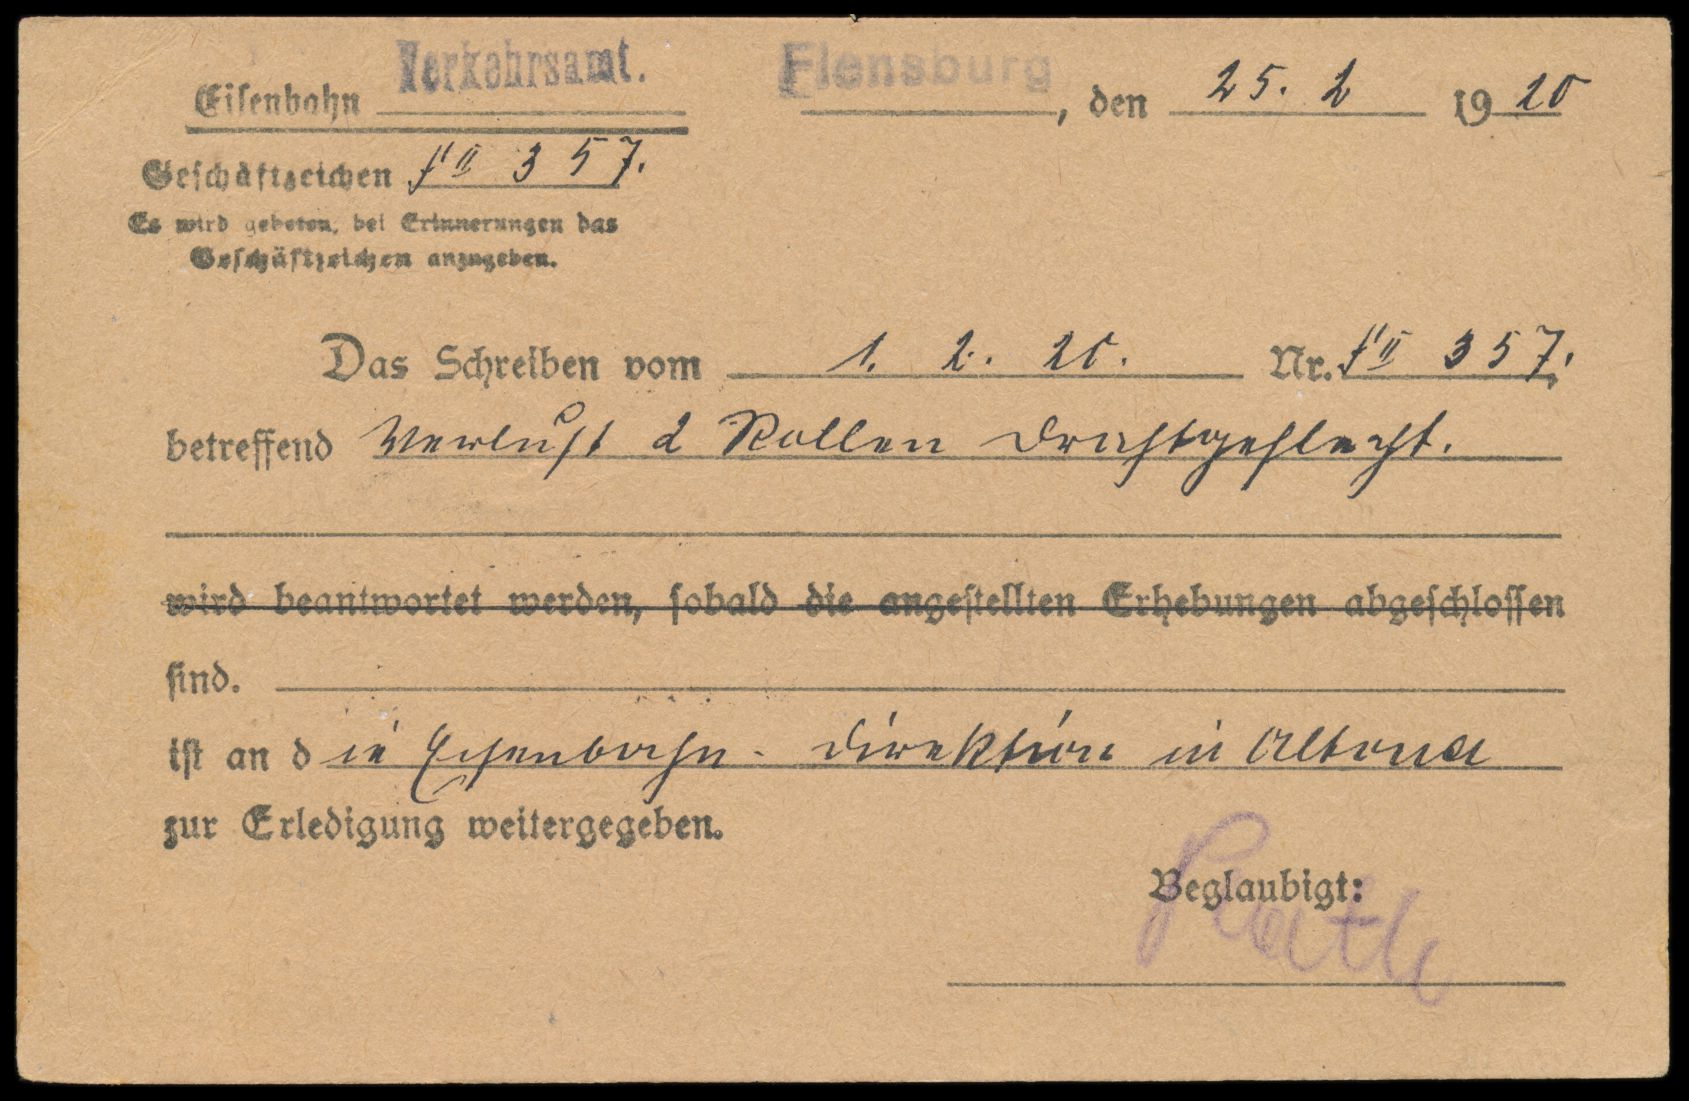 Eisenbahn Verkehrsamt. Flensburg, den 25. 2 1920
Geschäftzeichen II 357.
Es wird gebeten, bei Erinnerungen das
Geschäftzeichen anzugeben.
Das Schreiben vom 1. 2. 20. Nr. II 357.
betreffend Verlust 2 Rollen Drahtgeflecht.
wird beantwortet werden, sobald die angestellten Erhebungen abgeschlossen
sind.
ist an die Eisenbahn-Direktion in Altona
zur Erledigung weitergegeben.
Beglaubigt: